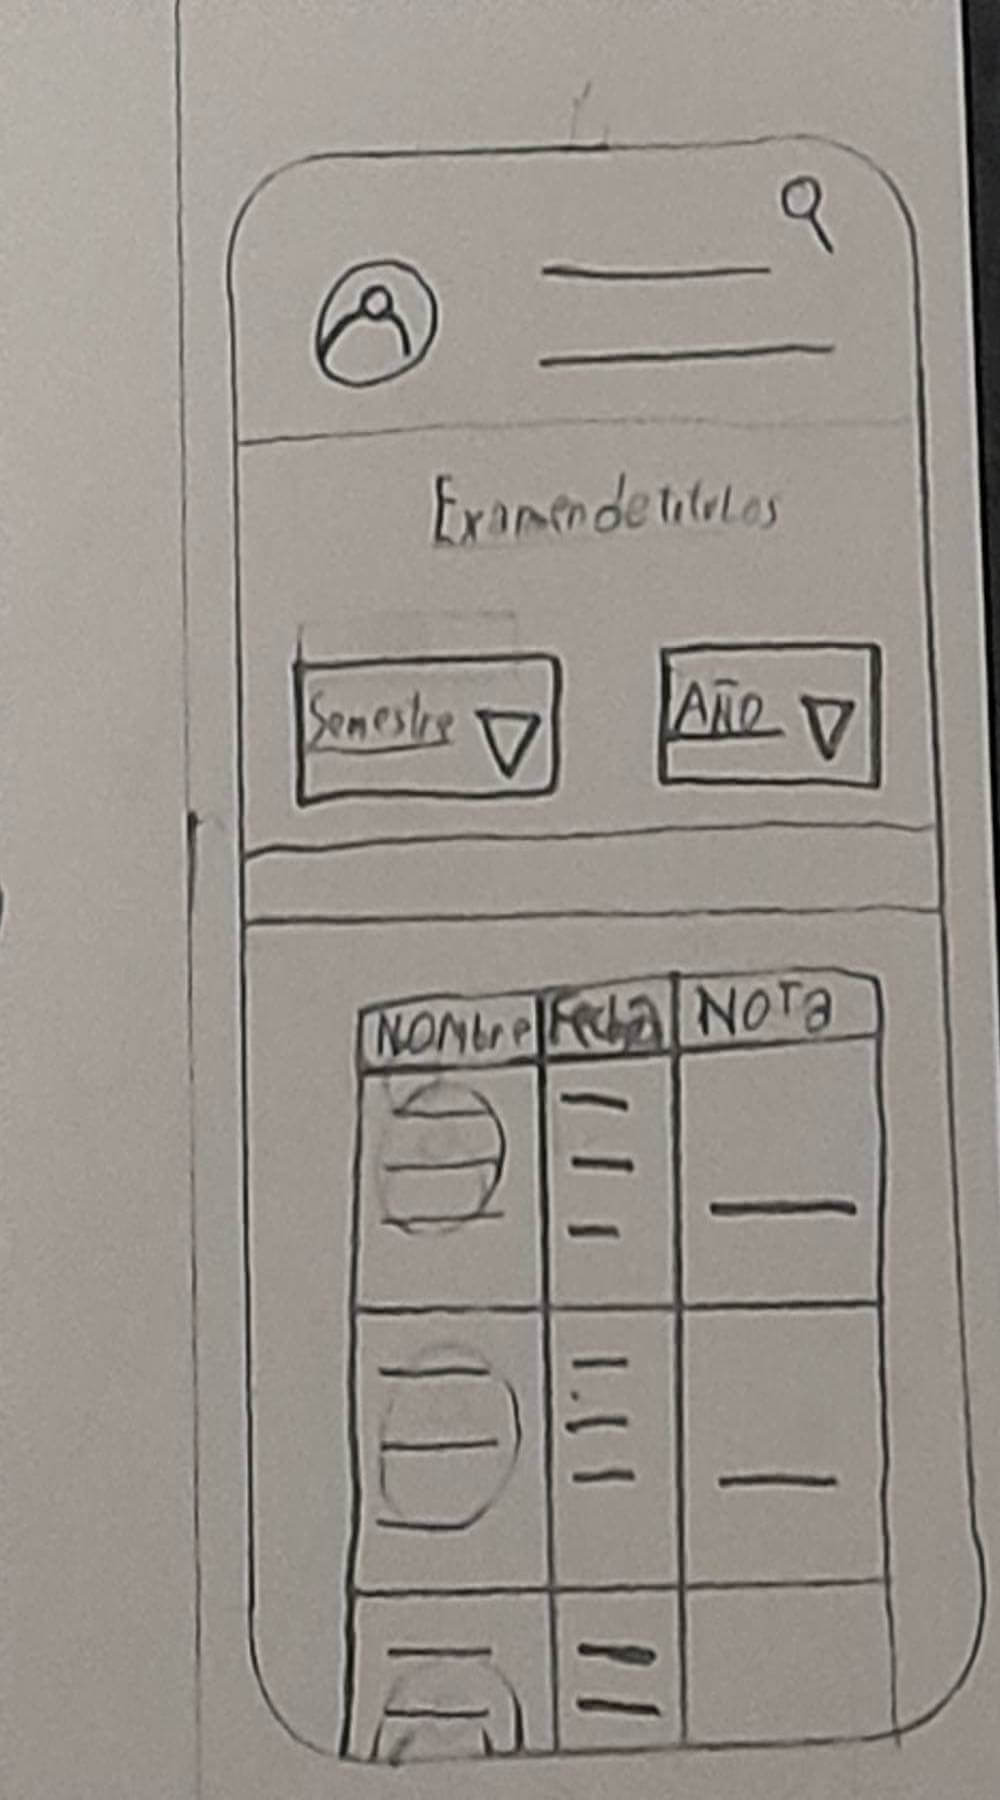 Examen de titulos
Semestre
Año
Nombre Fecha Nota